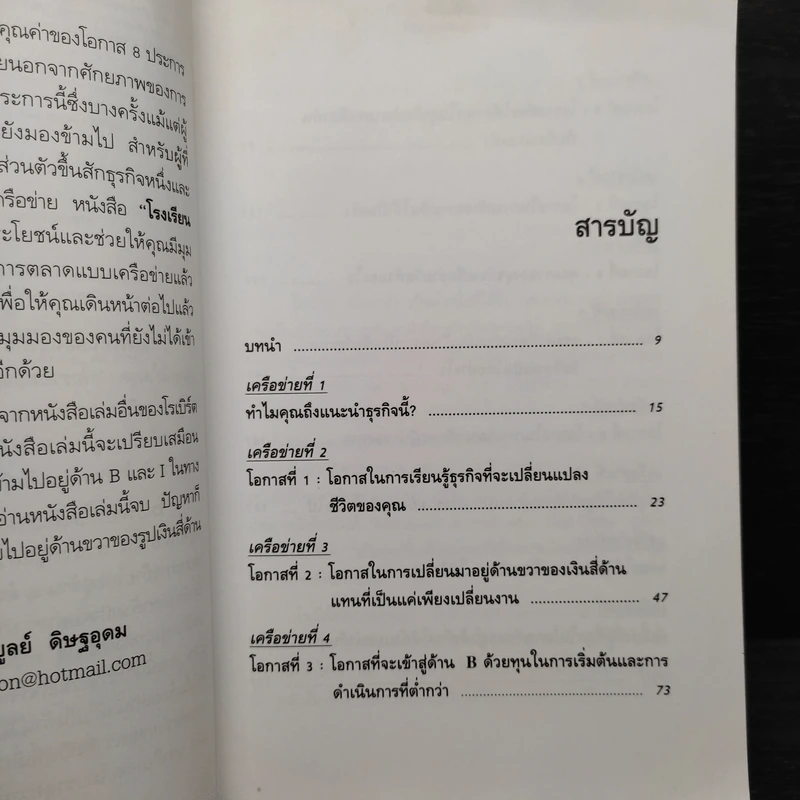 คุณค่าของโอกาส 8 ประการ
นอกจากศักยภาพของการ
ประการนี้ซึ่งบางครั้งแม้แต่ผู้
ยังมองข้ามไป สำหรับผู้ที่
ส่วนตัวขึ้นสักธุรกิจหนึ่งและ
หนังสือ “โรงเรียน
และช่วยให้คุณมีมุม
การตลาดแบบเครือข่ายแล้ว
เพื่อให้คุณเดินหน้าต่อไปแล้ว
มุมมองของคนที่ยังไม่ได้เข้า
อีกด้วย
จากหนังสือเล่มอื่นของโรเบิร์ต
หนังสือเล่มนี้จะเปรียบเสมือน
ข้ามไปอยู่ด้าน B และ I ในทาง
อ่านหนังสือเล่มนี้จบ ปัญหาก็
ไปอยู่ด้านขวาของรูปเงินสี่ด้าน
บูลย์ ดิษฐอุดม
on@hotmail.com
สารบัญ
บทนำ ........ 9
เครือข่ายที่ 1
ทำไมคุณถึงแนะนำธุรกิจนี้? ........ 15
เครือข่ายที่ 2
โอกาสที่ 1 : โอกาสในการเรียนรู้ธุรกิจที่จะเปลี่ยนแปลง
ชีวิตของคุณ ........ 23
เครือข่ายที่ 3
โอกาสที่ 2 : โอกาสในการเปลี่ยนมาอยู่ด้านขวาของเงินสี่ด้าน
แทนที่เป็นแค่เพียงเปลี่ยนงาน ........ 47
เครือข่ายที่ 4
โอกาสที่ 3 : โอกาสที่จะเข้าสู่ด้าน B ด้วยทุนในการเริ่มต้นและการ
ดำเนินการที่ต่ำกว่า ........ 73